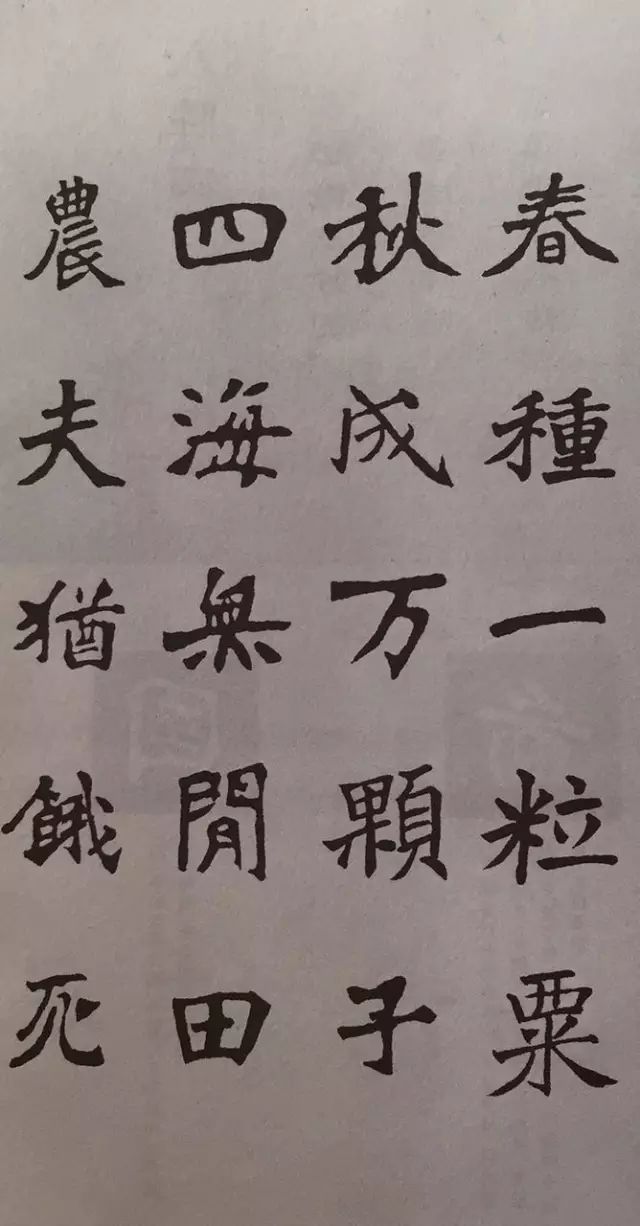 春種一粒粟
秋成万顆子
四海無閒田
農夫猶餓死